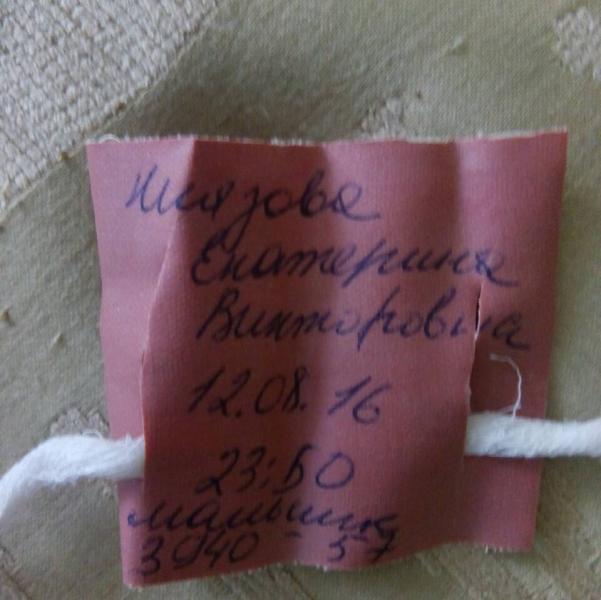 Ниязова
Екатерина
Викторовна
12.08.16
23:50
мальчик
3940 - 57